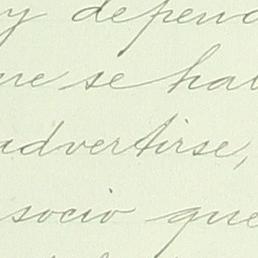 y depend
se ha
advertirse,
socio que